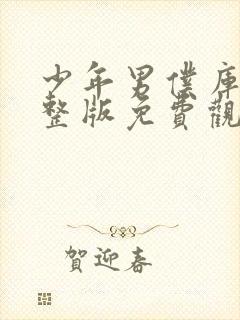 少年男僕庫
整版免費觀
賀迎春